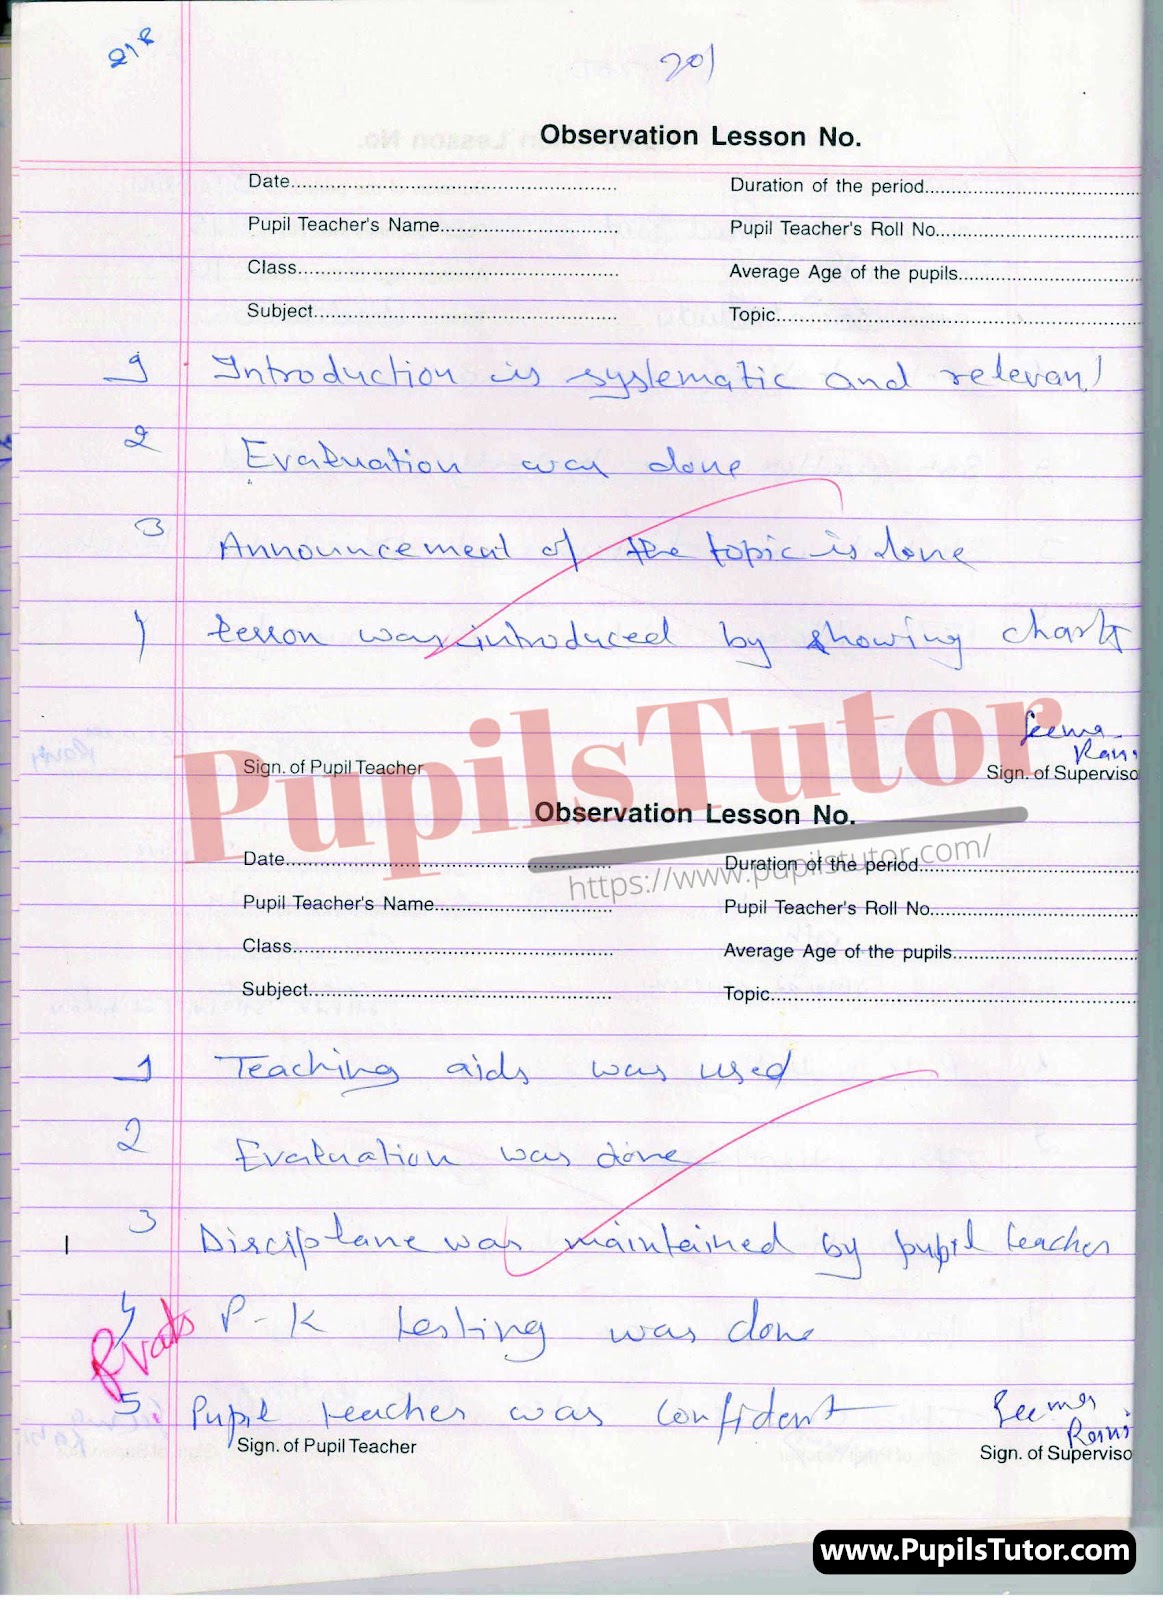 201
Observation Lesson No.
Date.................... Duration of the period....................
Pupil Teacher's Name.................... Pupil Teacher's Roll No....................
Class.................... Average Age of the pupils....................
Subject.................... Topic....................
1 Introduction is systematic and relevant
2 Evaluation was done
3 Announcement of the topic is done
lesson was introduced by showing chart
Seema
Rani
Sign. of Pupil Teacher Sign. of Superviso
PupilsTutor
https://www.pupilstutor.com/
Observation Lesson No.
Date.................... Duration of the period....................
Pupil Teacher's Name.................... Pupil Teacher's Roll No....................
Class.................... Average Age of the pupils....................
Subject.................... Topic....................
1 Teaching aids was used
2 Evaluation was done
3 Disciplane was maintained by pupil teacher
4 P-K testing was done
5 Pupil teacher was confident
Seema
Rani
Sign. of Pupil Teacher Sign. of Superviso
www.PupilsTutor.com